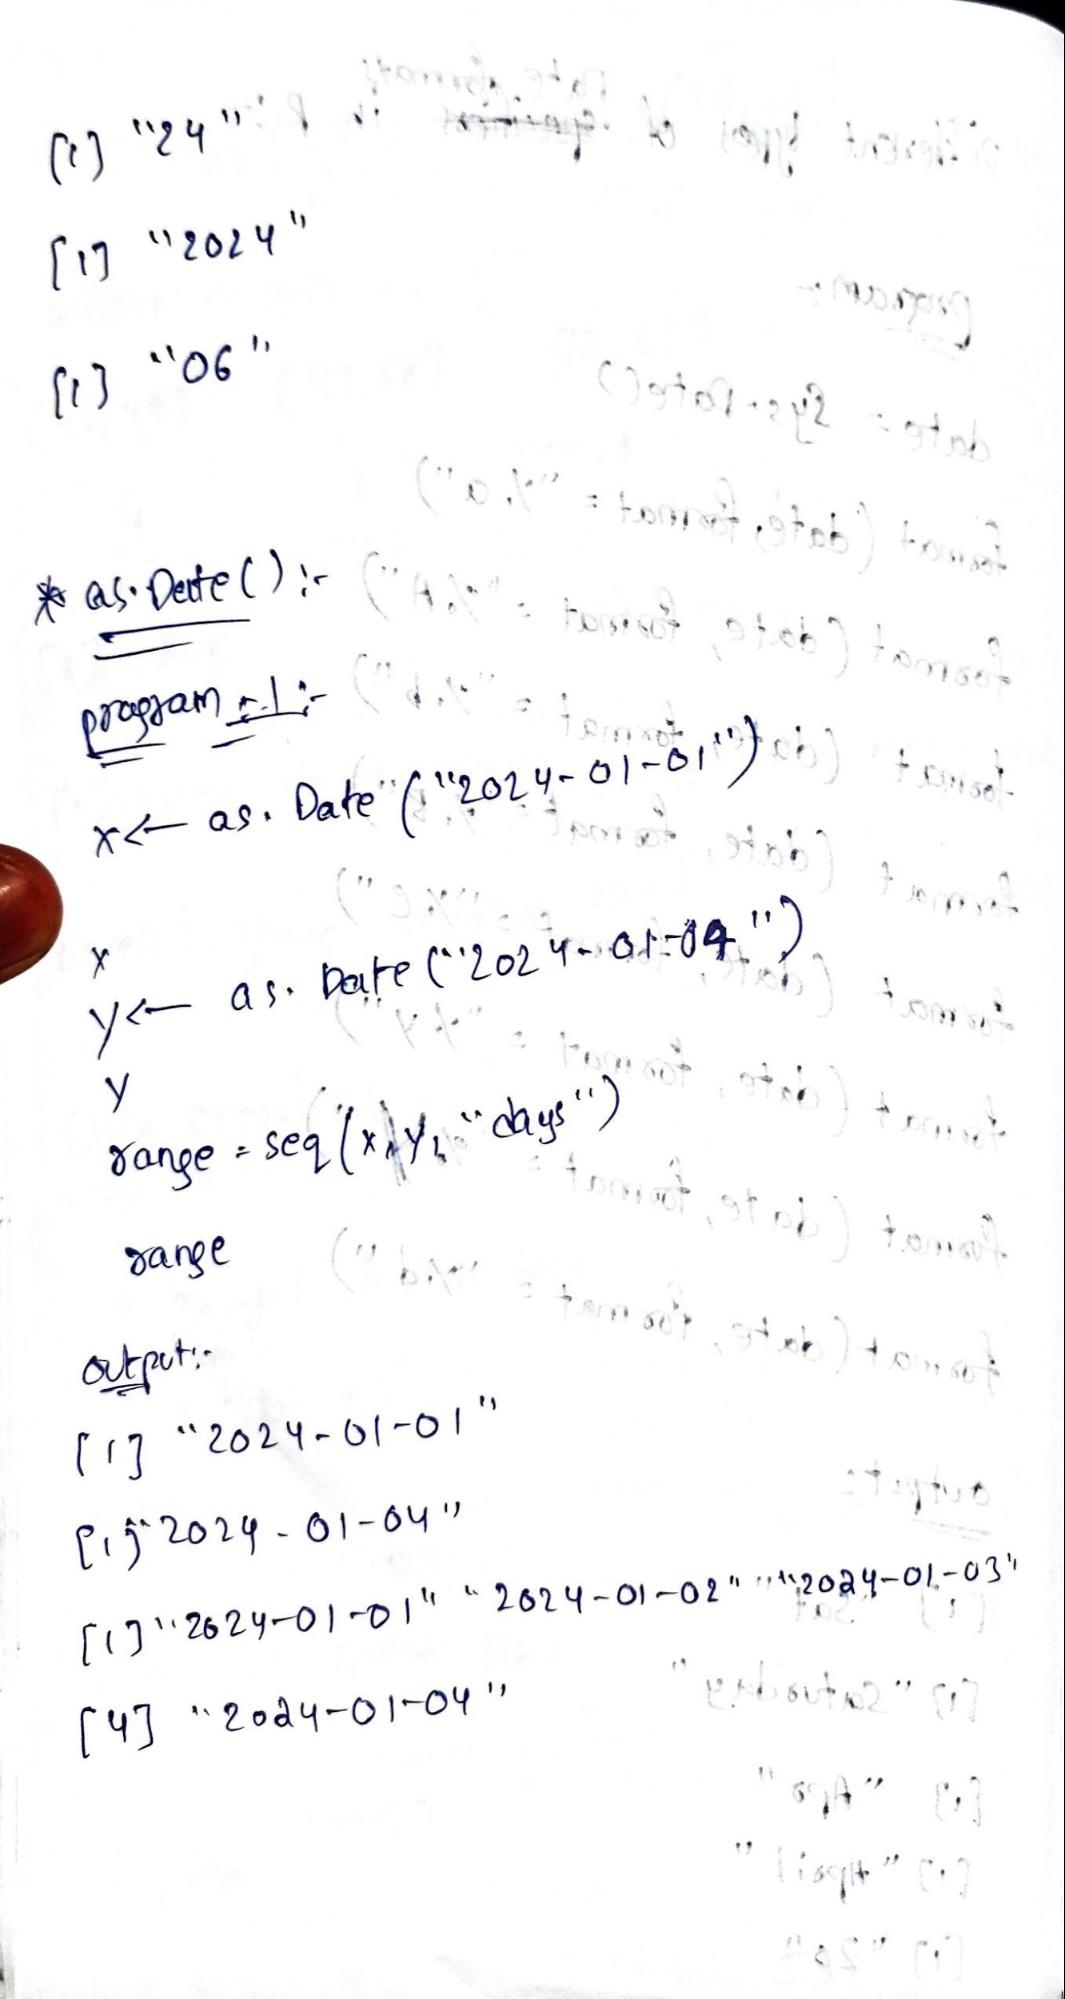 [1] "24"
[1] "2024"
[1] "06"
* as.Date() :-
program - 1 :-
x<- as.Date("2024-01-01")
x
y<- as.Date("2024-01-04")
y
range = seq(x, y, "days")
range
output:-
[1] "2024-01-01"
[1] "2024-01-04"
[1] "2024-01-01" "2024-01-02" "2024-01-03"
[4] "2024-01-04"